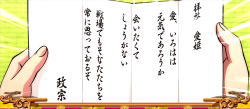 拝啓 愛姫
愛、いろはは
元気であろうか
会いたくて
しょうがない
戦場でもそなたたちを
常に思っておるぞ
政宗